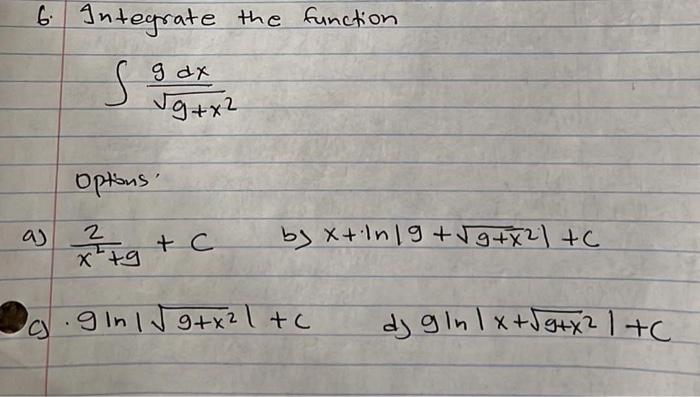 6. Integrate the function
∫ 9 dx / √9+x²
Options'
a) 2 / x²+9 + C b) x+ln|9 + √9+x²| + C
c) 9 ln | √9+x² | + C d) 9 ln | x+√9+x² | + C